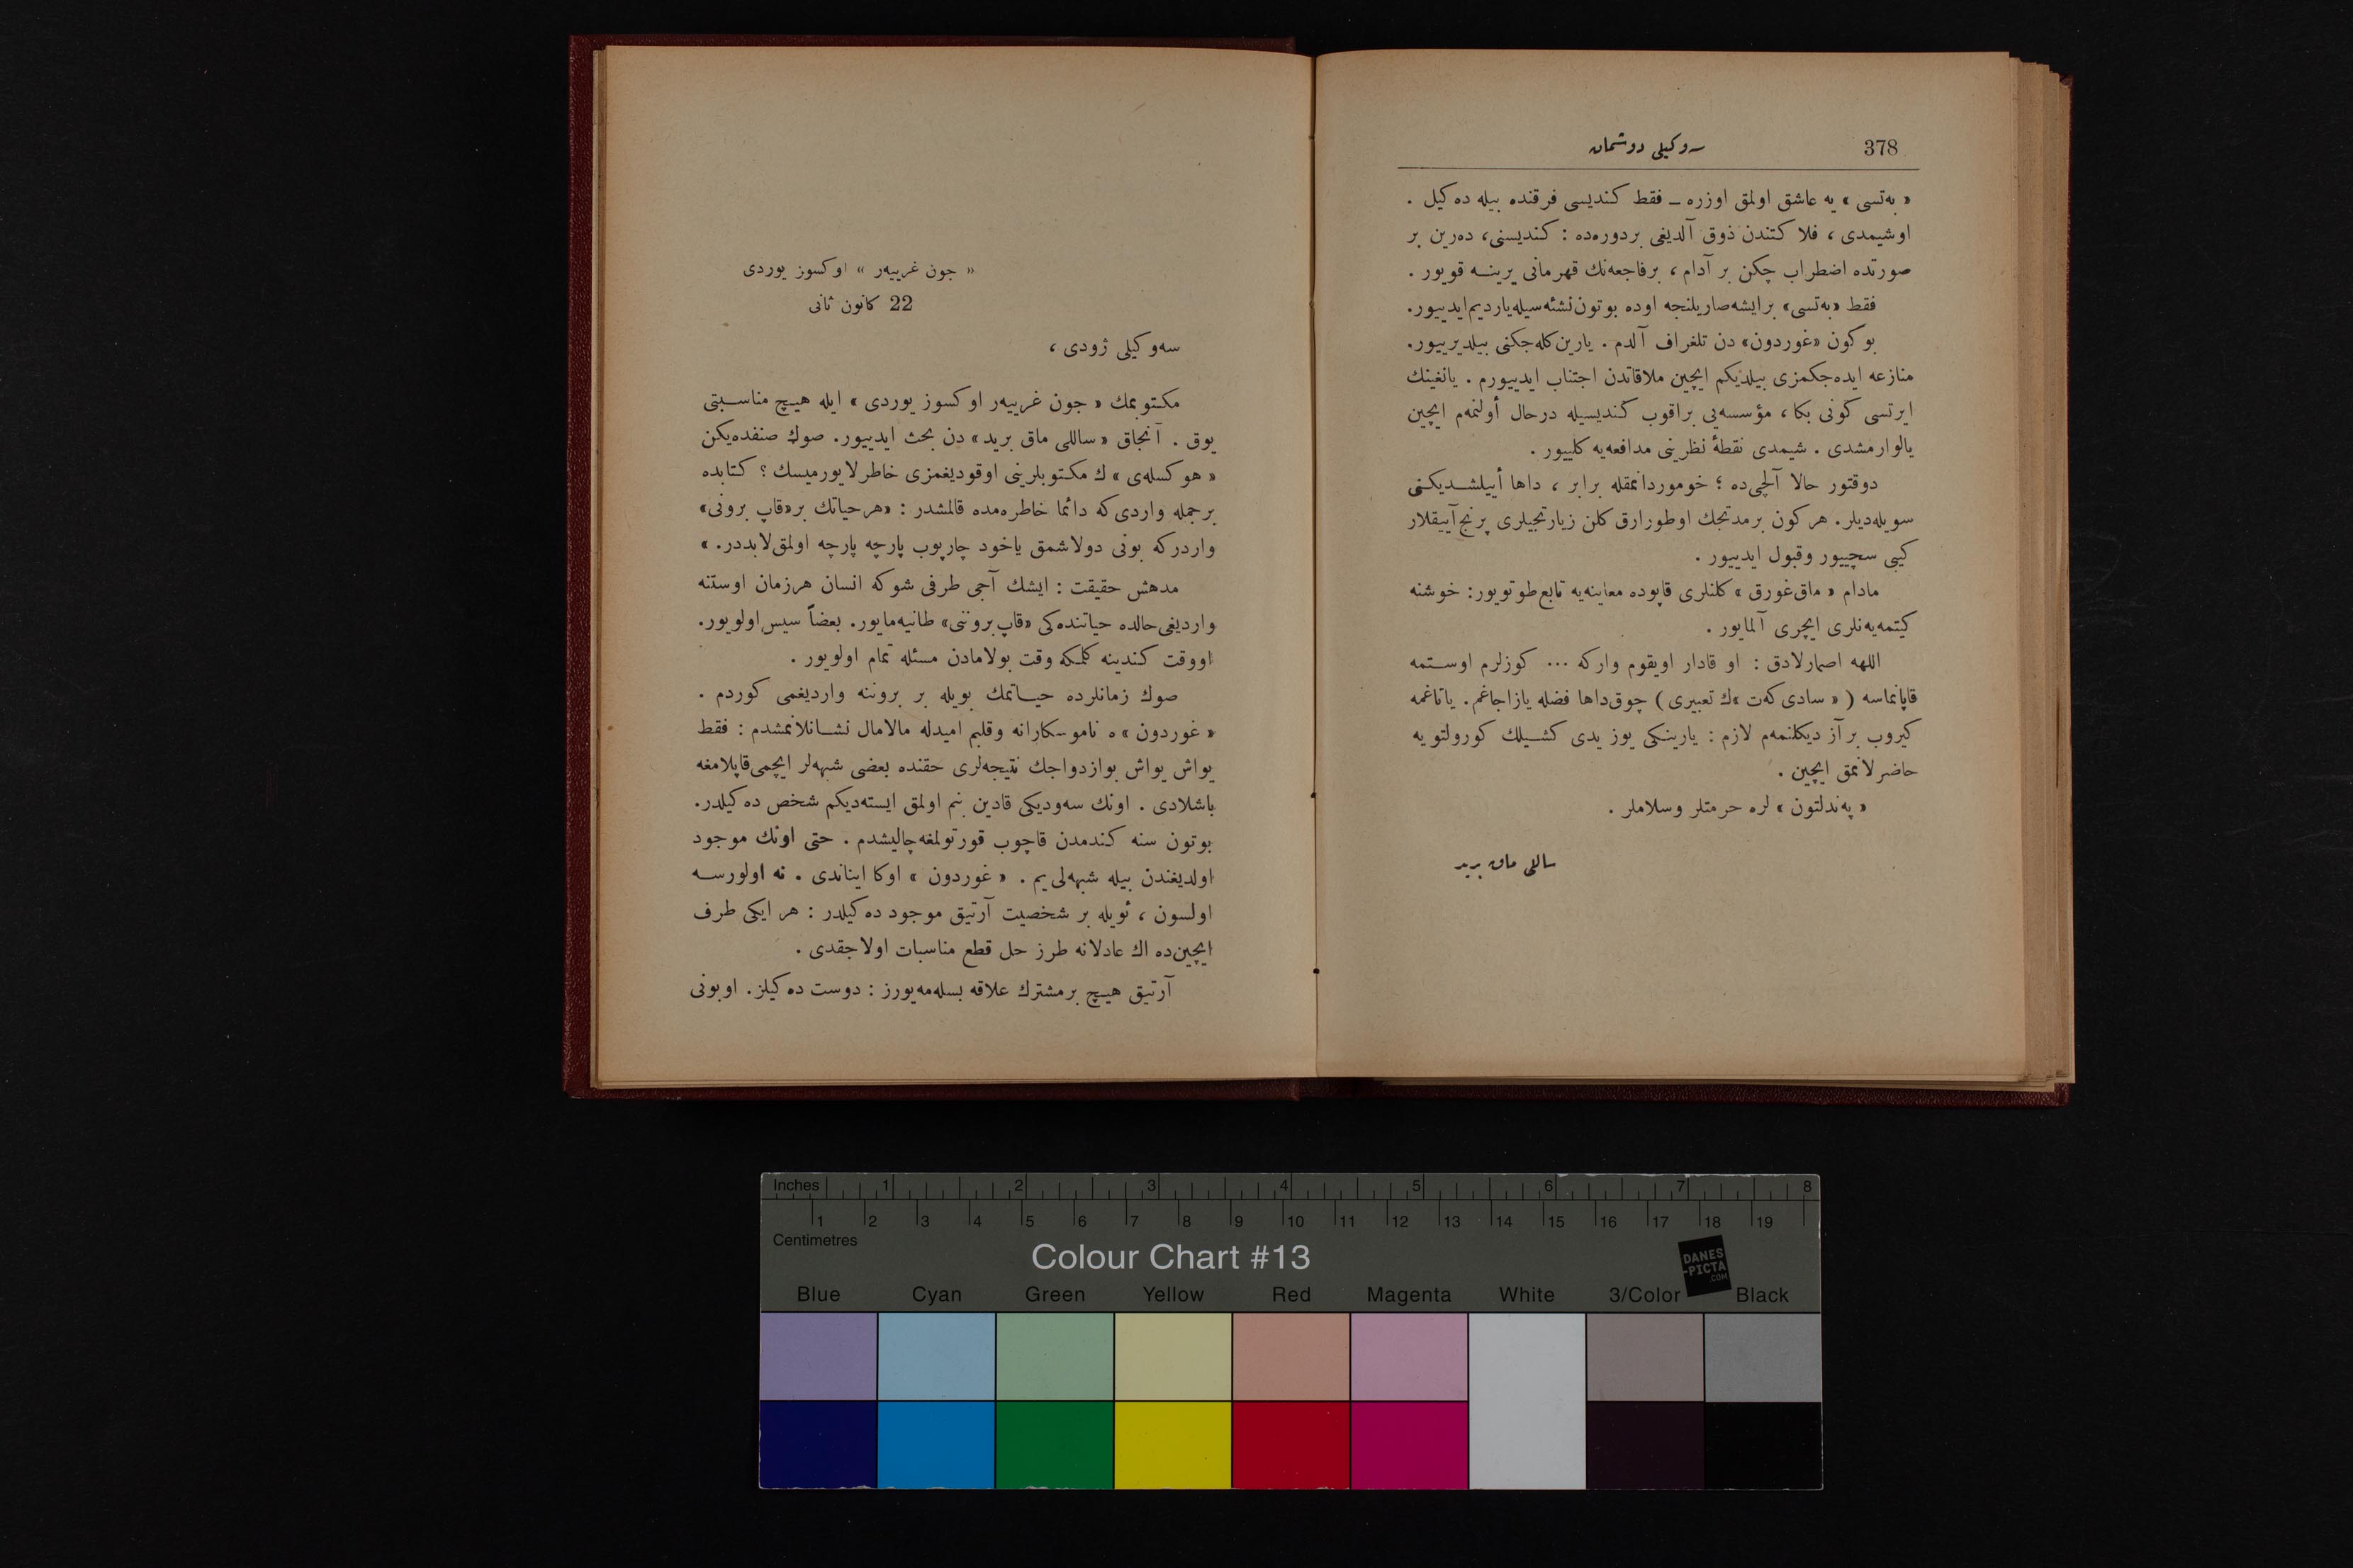 378
سوكيلى دوشمان
« به‌تسى » يه عاشق اولمق اوزره ـ فقط كنديسى فرقنده بيله ده‌كيل .
اوشيمدى ، فلاكتندن ذوق آلديغى بردوره‌ده : كنديسنى، ده‌رين بر
صورتده اضطراب چكن بر آدام ، برفاجعه‌نك قهرمانى يرينه قويور .
فقط «به‌تسى» برايشه صاريلنجه اوده بوتون نشئه‌سيله يارديم ايدييور.
بوكون «غوردون» دن تلغراف آلدم . يارين كله‌جكنى بيلديرييور.
منازعه ايده‌جكمزى بيلديكم ايچين ملاقاتدن اجتناب ايدييورم . يانغينك
ايرتسى كونى بكا ، مؤسسه‌يى براقوب كنديسيله درحال أولنمه‌م ايچين
يالوارمشدى . شيمدى نقطهٔ نظرينى مدافعه‌يه كلييور .
دوقتور حالا آلچى‌ده ؛ خوموردانمقله برابر ، داها أييلشديكنى
سويله‌ديلر. هركون برمدتجك اوطورارق كلن زيارتجيلرى پرنج آييقلار
كيبى سچييور وقبول ايدييور .
مادام « ماق‌غورق » كلنلرى قاپوده معاينه‌يه تابع طوتويور: خوشنه
كيتمه‌يه‌نلرى ايچرى آلمايور .
اللهه اصمارلادق : او قادار اويقوم واركه ... كوزلرم اوستمه
قاپانماسه ( « سادى كه‌ت »ك تعبيرى ) چوق‌داها فضله يازاجاغم. ياتاغمه
كيروب برآز ديكلنمه‌م لازم : يارينكى يوز يدى كشيلك كورولتويه
حاضرلانمق ايچين .
« په‌ندلتون » لره حرمتلر وسلاملر .
ساللى ماق بريد
« جون غرييه‌ر » اوكسوز يوردى
22 كانون ثانى
سه‌وكيلى ژودى ،
مكتوبمك « جون غرييه‌ر اوكسوز يوردى » ايله هيچ مناسبتى
يوق . آنجاق « ساللى ماق بريد» دن بحث ايدييور. صوك صنفده‌يكن
« هوكسله‌ى » ك مكتوبلرينى اوقوديغمزى خاطرلايورميسك ؟ كتابده
برجمله واردى‌كه دائما خاطره‌مده قالمشدر : «هرحياتك بر«قاپ برونى»
واردركه بونى دولاشمق ياخود چارپوب پارچه پارچه اولمق لابددر. »
مدهش حقيقت : ايشك آجى طرفى شوكه انسان هرزمان اوستنه
وارديغى حالده حياتنده‌كى «قاپ بروننى» طانيه‌مايور. بعضاً سيس اولويور.
اووقت كندينه كلمكه وقت بولامادن مسئله تمام اولويور .
صوك زمانلرده حياتمك بويله بر بروننه وارديغمى كوردم .
« غوردون » ه ناموسكارانه وقلبم اميدله مالامال نشانلانمشدم : فقط
يواش يواش بوازدواجك نتيجه‌لرى حقنده بعضى شبهه‌لر ايچمى قاپلامغه
باشلادى . اونك سه‌وديكى قادين بنم اولمق ايسته‌ديكم شخص ده‌كيلدر.
بوتون سنه كندمدن قاچوب قورتولمغه چاليشدم . حتى اونك موجود
اولديغندن بيله شبهه‌لى‌يم . « غوردون » اوكا ايناندى . نه اولورسه
اولسون ، ئويله بر شخصيت آرتيق موجود ده‌كيلدر : هر ايكى طرف
ايچين‌ده اك عادلانه طرز حل قطع مناسبات اولاجقدى .
آرتيق هيچ برمشترك علاقه بسله‌مه‌يورز : دوست ده‌كيلز. اوبونى
Inches 1 2 3 4 5 6 7 8
1 2 3 4 5 6 7 8 9 10 11 12 13 14 15 16 17 18 19
Centimetres
Colour Chart #13
DANES
-PICTA
.COM
Blue Cyan Green Yellow Red Magenta White 3/Color Black